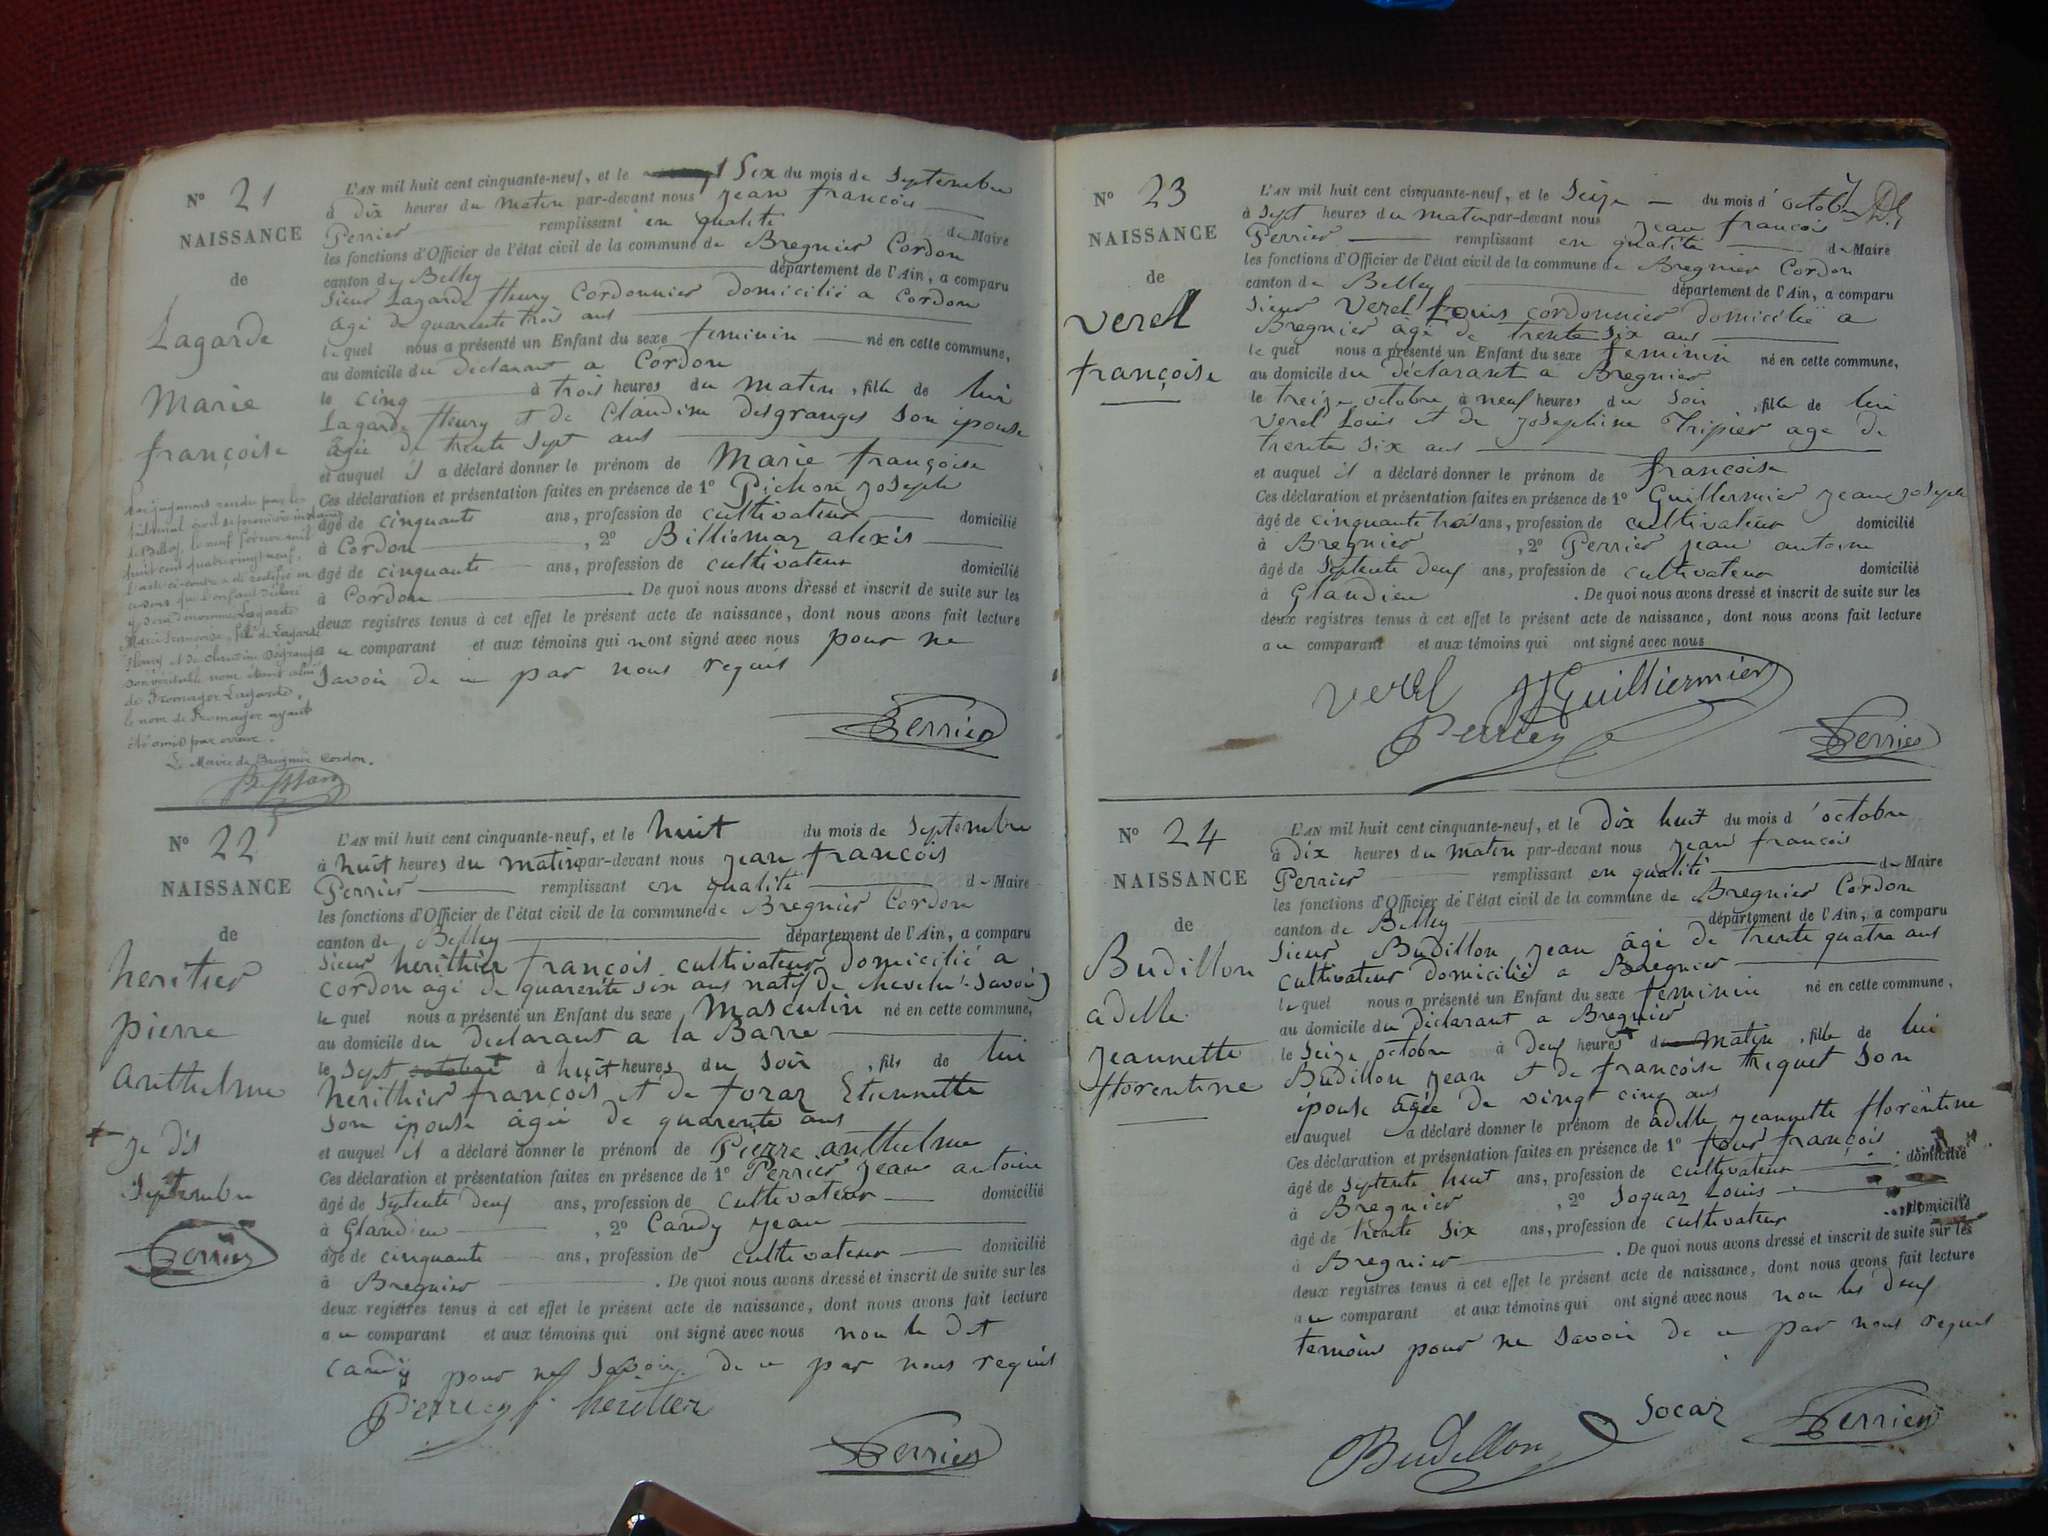 N° 21
NAISSANCE
de
Lagarde
Marie
françoise
L'AN mil huit cent cinquante-neuf, et le Six du mois de Septembre
à Dix heures du matin par-devant nous jean françois
Perrier remplissant en qualité de Maire
les fonctions d'Officier de l'état civil de la commune de Bregnier Cordon
canton de Belley département de l'Ain, a comparu
Sieur Lagarde fleury Cordonnier domicilié a Cordon
âgé de quarente trois ans
lequel nous a présenté un Enfant du sexe feminin né en cette commune,
au domicile du déclarant a Cordon
le cinq à trois heures du matin, fille de lui
Lagarde fleury et de Claudine desgranges son épouse
âgée de trente sept ans
et auquel il a déclaré donner le prénom de Marie françoise
Ces déclaration et présentation faites en présence de 1° Pichon joseph
âgé de cinquante ans, profession de cultivateur domicilié
à Cordon, 2° Billiomaz alexis
âgé de cinquante ans, profession de cultivateur domicilié
à Cordon. De quoi nous avons dressé et inscrit de suite sur les
deux registres tenus à cet effet le présent acte de naissance, dont nous avons fait lecture
au comparant et aux témoins qui nont signé avec nous pour ne
Savoir de ce par nous requis
Perrier
Par jugement rendu par le
tribunal civil de première instance
de Belley, le neuf février mil
huit cent quatre vingt neuf,
l'acte ci-contre a été rectifié en
ce sens que l'enfant déclaré
y sera dénommé Lagarde
Marie Françoise, fille de Lagarde
fleury et de Claudine Desgranges
son véritable nom étant celui
de Fromager Lagarde,
le nom de Fromager ayant
été omis par erreur.
Le Maire de Brégnier Cordon.
N° 22
NAISSANCE
de
heritier
pierre
anthelme
je dis
Septembre
Perrier
L'AN mil huit cent cinquante-neuf, et le huit du mois de Septembre
à huit heures du matin par-devant nous jean françois
Perrier remplissant en qualité de Maire
les fonctions d'Officier de l'état civil de la commune de Bregnier Cordon
canton de Belley département de l'Ain, a comparu
Sieur herithier françois cultivateur domicilié a
cordon agé de quarente six ans natif de chevelu (Savoie)
lequel nous a présenté un Enfant du sexe Masculin né en cette commune,
au domicile du déclarant a la Barre
le Sept octobre à huit heures du Soir, fils de lui
herithier françois et de foraz Etiennette
son épouse âgée de quarente ans
et auquel il a déclaré donner le prénom de Pierre anthelme
Ces déclaration et présentation faites en présence de 1° Perrier jean antoine
âgé de Septente deux ans, profession de Cultivateur domicilié
à Glandieu, 2° Candy jean
âgé de cinquante ans, profession de cultivateur domicilié
à Bregnier. De quoi nous avons dressé et inscrit de suite sur les
deux registres tenus à cet effet le présent acte de naissance, dont nous avons fait lecture
au comparant et aux témoins qui ont signé avec nous non le dit
candy pour ne Savoir de ce par nous requis
Perrier f. heritier
Perrier
N° 23
NAISSANCE
de
Verel
françoise
L'AN mil huit cent cinquante-neuf, et le Seize du mois d'octobre
à Sept heures du matin par-devant nous jean françois
Perrier remplissant en qualité de Maire
les fonctions d'Officier de l'état civil de la commune de Bregnier Cordon
canton de Belley département de l'Ain, a comparu
Sieur Verel Louis cordonnier domicilié a
Bregnier âgé de trente six ans
lequel nous a présenté un Enfant du sexe feminin né en cette commune,
au domicile du déclarant a Bregnier
le treize octobre à neuf heures du Soir, fille de lui
Verel Louis et de josephine Tripier age de
trente six ans
et auquel il a déclaré donner le prénom de françoise
Ces déclaration et présentation faites en présence de 1° Guillermier jean joseph
âgé de cinquante trois ans, profession de cultivateur domicilié
à Bregnier, 2° Perrier jean antoine
âgé de Septente deux ans, profession de cultivateur domicilié
à Glandieu. De quoi nous avons dressé et inscrit de suite sur les
deux registres tenus à cet effet le présent acte de naissance, dont nous avons fait lecture
au comparant et aux témoins qui ont signé avec nous
Verel JJ Guilliermier
Perrier
Perrier
N° 24
NAISSANCE
de
Budillon
adelle
jeannette
florentine
L'AN mil huit cent cinquante-neuf, et le Dix huit du mois d'octobre
à Dix heures du Matin par-devant nous jean françois
Perrier remplissant en qualité de Maire
les fonctions d'Officier de l'état civil de la commune de Bregnier Cordon
canton de Belley département de l'Ain, a comparu
Sieur Budillon jean âgé de trente quatre ans
cultivateur domicilié a Bregnier
lequel nous a présenté un Enfant du sexe feminin né en cette commune,
au domicile du déclarant a Bregnier
le Seize octobre à deux heures du matin, fille de lui
Budillon jean et de françoise triquet son
épouse âgée de vingt cinq ans
et auquel a déclaré donner le prénom de adelle jeannette florentine
Ces déclaration et présentation faites en présence de 1° four françois
âgé de Septente huit ans, profession de cultivateur domicilié
à Bregnier, 2° Soquaz Louis
âgé de trente Six ans, profession de cultivateur domicilié
à Bregnier. De quoi nous avons dressé et inscrit de suite sur les
deux registres tenus à cet effet le présent acte de naissance, dont nous avons fait lecture
au comparant et aux témoins qui ont signé avec nous non les deux
temoins pour ne Savoir de ce par nous requis
Budillon Socaz Perrier